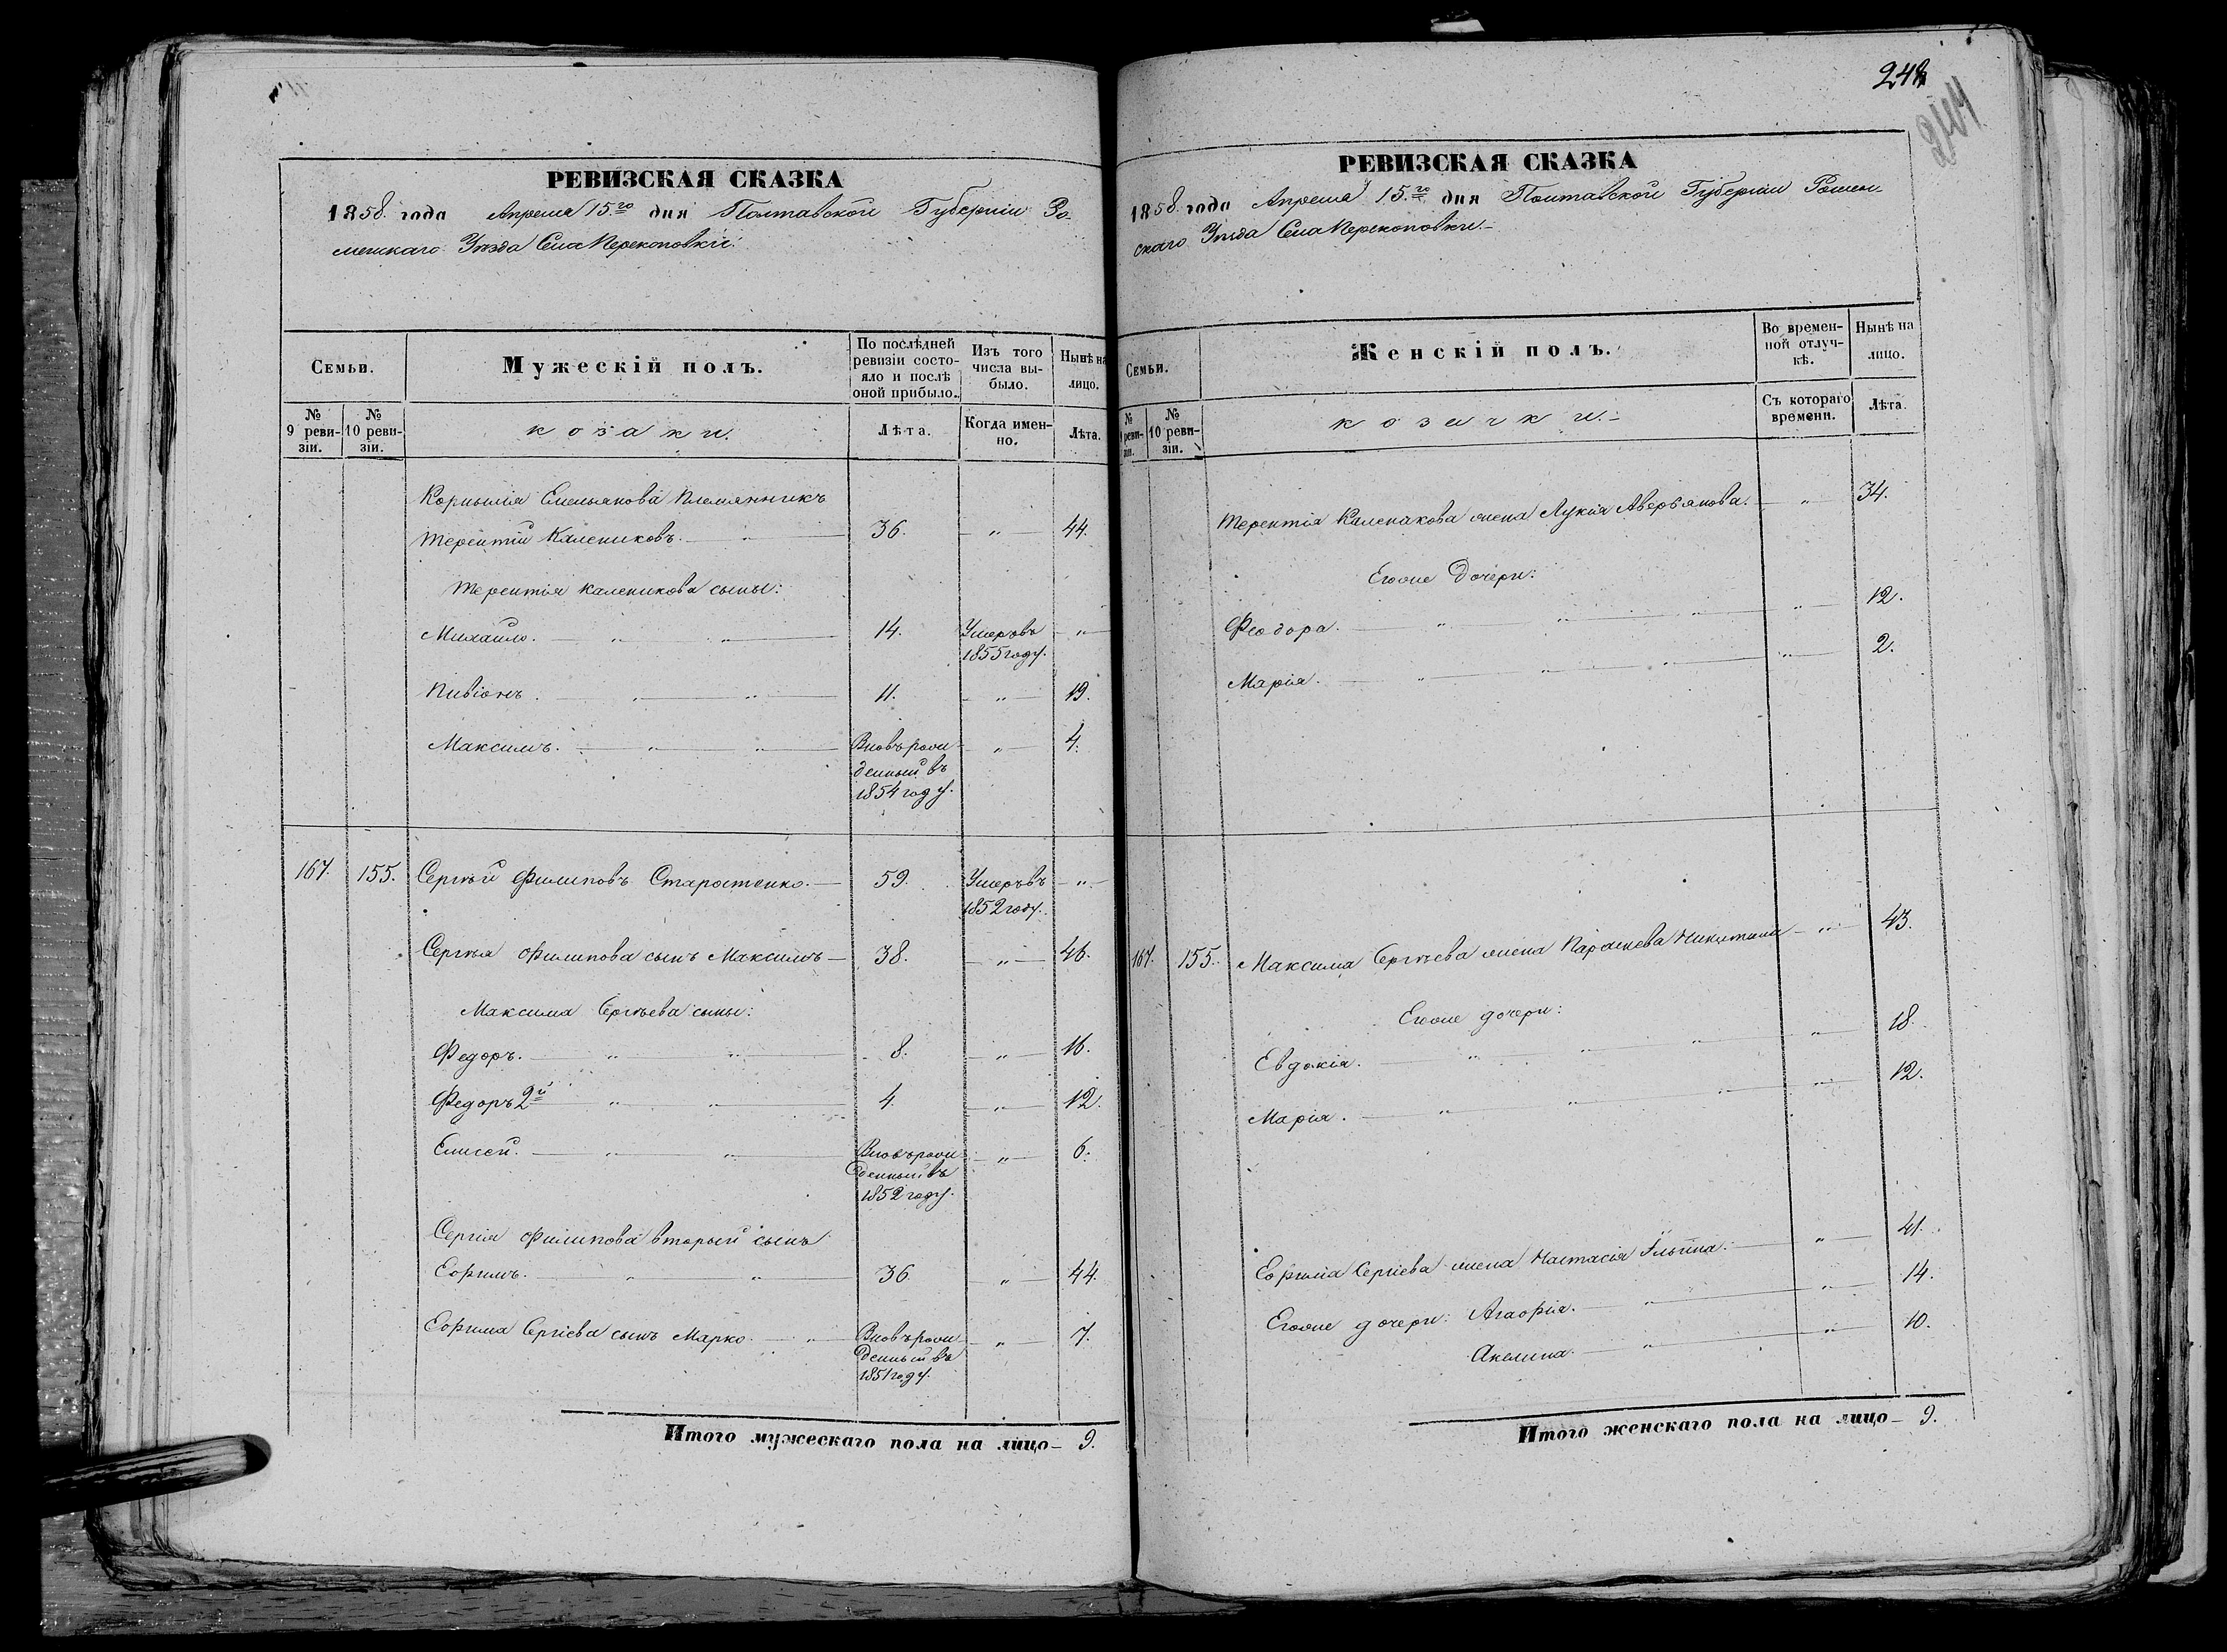 РЕВИЗСКАЯ СКАЗКА
1858 года Апреля 15го дня Полтавской Губерніи Ро-
менскаго Уѣзда Села Перекоповки.
Семьи.
Мужескій полъ.
По послѣдней ревизіи состо-
яло и послѣ оной прибыло.
Изъ того числа вы-
было.
Нынѣ на лицо.
№ 9 реви-
зіи.
№ 10 реви-
зіи.
козаки.
Лѣта.
Когда имен-
но.
Лѣта.
Корнилія Емельянова племянникъ
Терентій Калениковъ. — „ — 36. — „ — 44.
Терентія Каленикова сыны:
Михайло. — „ — „ — 14. Умеръ въ — „ —
1855 году.
Пивіонъ. — „ — „ — 11. — „ — 19.
Максимъ. — „ — „ — Вновь рож- — „ — 4.
денный въ
1854 году.
167. 155. Сергѣй Филиповъ Старостенко. — 59. Умеръ въ — „ —
1852 году.
Сергѣя Филипова сынъ Максимъ — 38. — „ — 46.
Максима Сергѣева сыны:
Федоръ. — „ — „ — 8. — „ — 16.
Федоръ 2й — „ — „ — 4. — „ — 12.
Елисей. — „ — „ — Вновь рож- — „ — 6.
денный въ
1852 году.
Сергія Филипова вторый сынъ
Ефимъ. — „ — „ — 36. „ — 44.
Ефима Сергіева сынъ Марко. — „ — Вновь рож- — „ — 7.
денный въ
1851 году.
Итого мужескаго пола на лицо — 9.
248
244
РЕВИЗСКАЯ СКАЗКА
1858 года Апреля 15го дня Полтавской Губерніи Ромен-
скаго Уѣзда Села Перекоповки.—
Семьи.
Женскій полъ.
Во времен-
ной отлуч-
кѣ.
Нынѣ на лицо.
№ 9 реви-
зіи.
№ 10 реви-
зіи.
козачки.—
Съ котораго времени.
Лѣта.
Терентія Каленикова жена Лукія Аверьянова. — „ — 34.
Егоже Дочери:
Феодора. — „ — „ — „ — „ — 12.
Марія. — „ — „ — „ — „ — 2.
167. 155. Максима Сергѣева жена Параскева Никитина — „ — 43.
Егоже дочери:
Евдокія. — „ — „ — „ — „ — 18.
Марія. — „ — „ — „ — „ — 12.
Ефима Сергіева жена Настасія Ильина. — „ — 41.
Егоже дочери: Агафія. — „ — „ — 14.
Акелина. — „ — „ — 10.
Итого женскаго пола на лицо — 9.